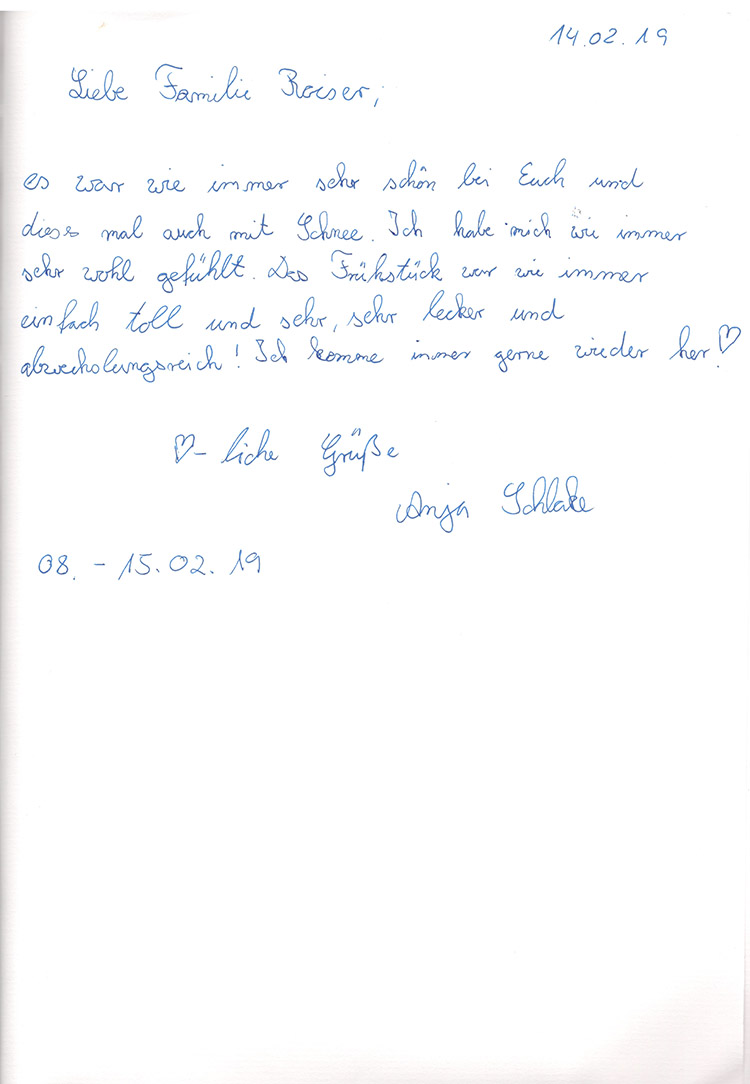 14.02.19
Liebe Familie Raiser,
es war wie immer sehr schön bei Euch und
dieses mal auch mit Schnee. Ich habe mich wie immer
sehr wohl gefühlt. Das Frühstück war wie immer
einfach toll und sehr, sehr lecker und
abwechslungsreich! Ich komme immer gerne wieder her!♡
♡-liche Grüße
Anja Schlake
08. - 15.02.19